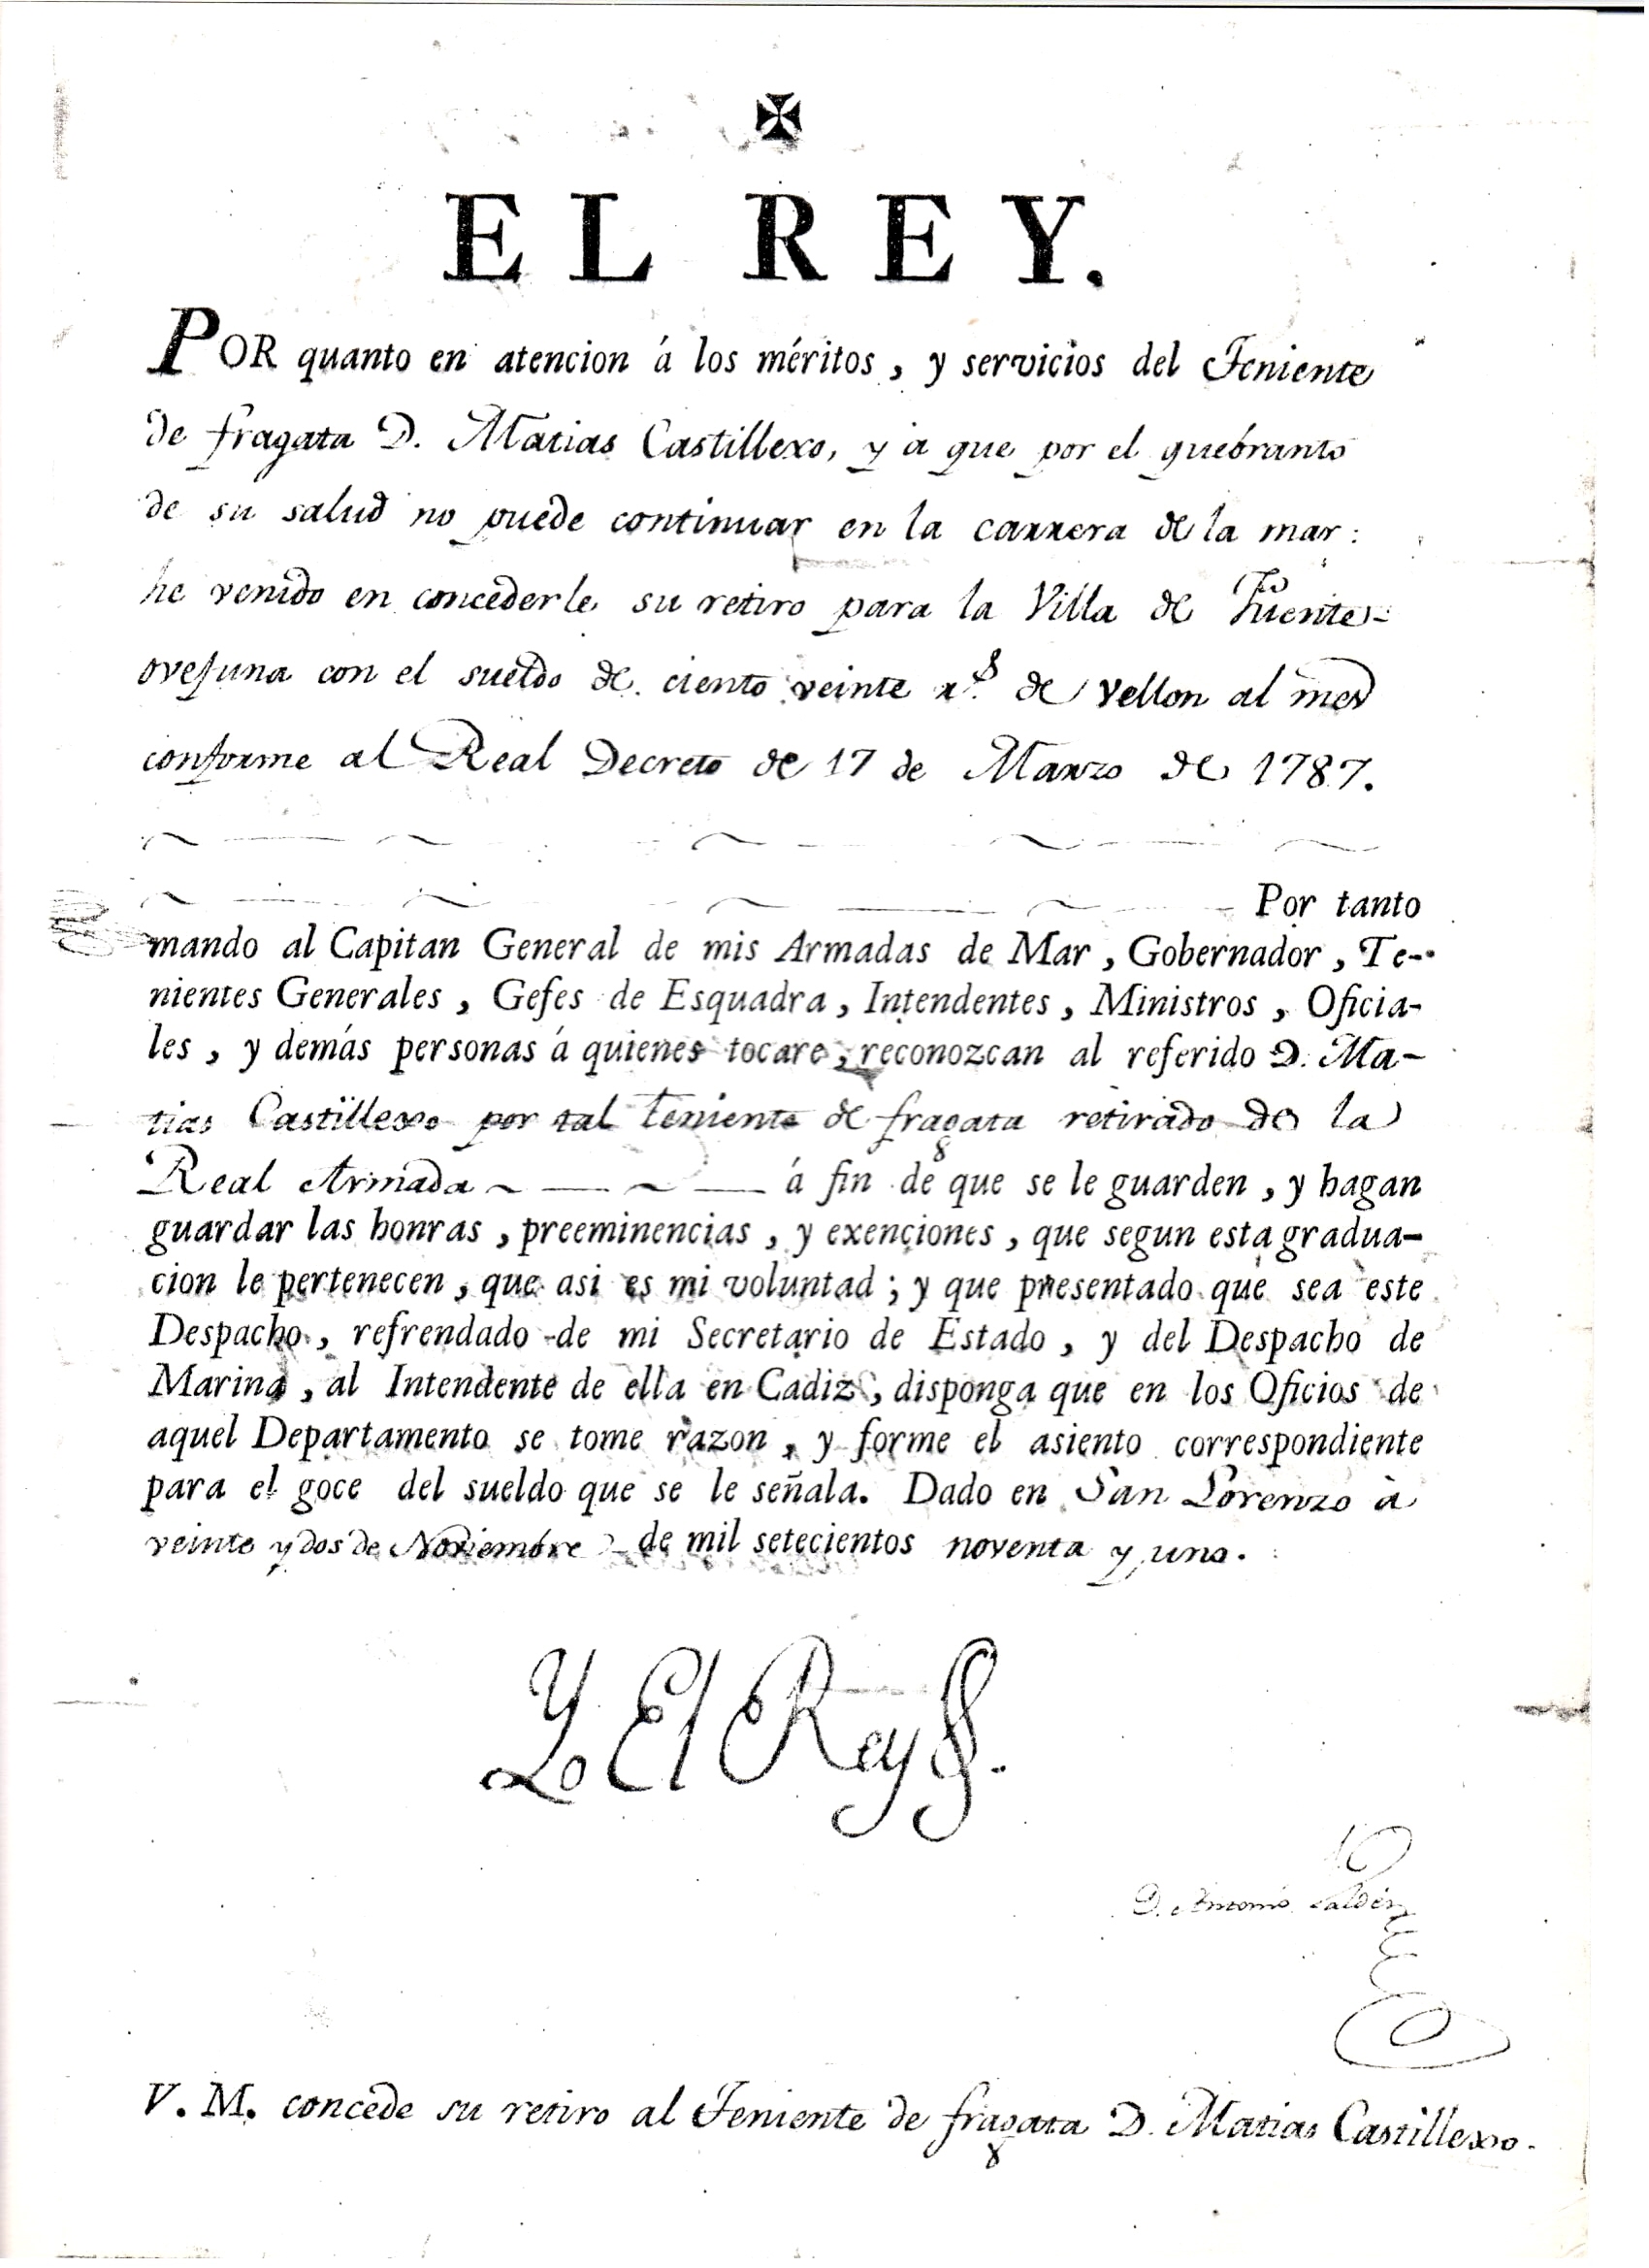 EL REY.
POR quanto en atencion á los méritos, y servicios del Teniente
de fragata D. Matias Castillexo, y a que por el quebranto
de su salud no puede continuar en la carrera de la mar:
he venido en concederle su retiro para la Villa de Fuente-
ovejuna con el sueldo de ciento veinte r.s de vellon al mes
conforme al Real Decreto de 17 de Marzo de 1787.
Por tanto
mando al Capitan General de mis Armadas de Mar, Gobernador, Te-
nientes Generales, Gefes de Esquadra, Intendentes, Ministros, Oficia-
les, y demás personas á quienes tocare, reconozcan al referido D. Ma-
tias Castillexo por tal Teniente de fragata retirado de la
Real Armada á fin de que se le guarden, y hagan
guardar las honras, preeminencias, y exenciones, que segun esta gradua-
cion le pertenecen, que asi es mi voluntad; y que presentado que sea este
Despacho, refrendado de mi Secretario de Estado, y del Despacho de
Marina, al Intendente de ella en Cadiz, disponga que en los Oficios de
aquel Departamento se tome razon, y forme el asiento correspondiente
para el goce del sueldo que se le señala. Dado en San Lorenzo à
veinte y dos de Noviembre de mil setecientos noventa y uno.
Yo El Rey
D. Antonio Valdés
V. M. concede su retiro al Teniente de fragata D. Matias Castillexo.